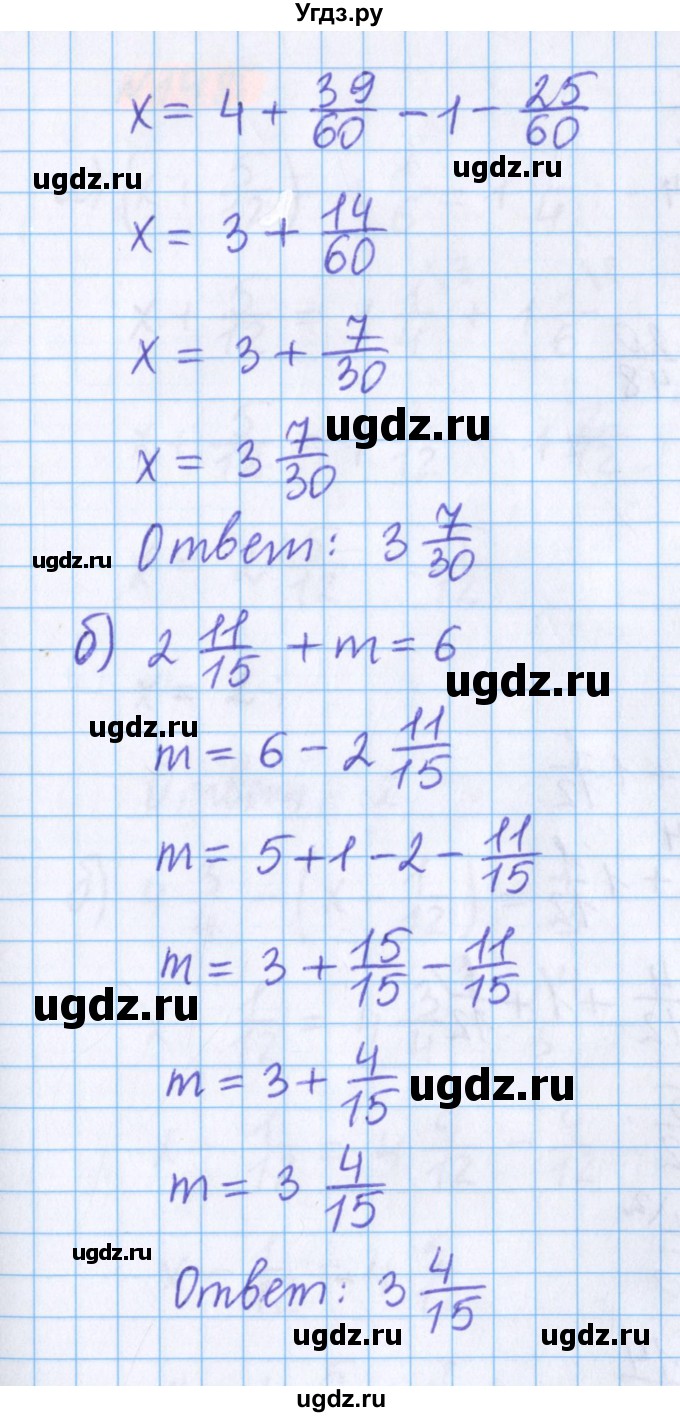 Угдз.ру
x = 4 + 39/60 - 1 - 25/60
ugdz.ru ugdz.ru
x = 3 + 14/60
x = 3 + 7/30
ugdz.ru
x = 3 7/30
ugdz.ru Ответ: 3 7/30
б) 2 11/15 + m = 6
ugdz.ru
ugdz.ru
m = 6 - 2 11/15
m = 5 + 1 - 2 - 11/15
m = 3 + 15/15 - 11/15
ugdz.ru
m = 3 + 4/15
ugdz.ru
m = 3 4/15
ugdz.ru
Ответ: 3 4/15
ugdz.ru ugdz.ru
ugdz.ru